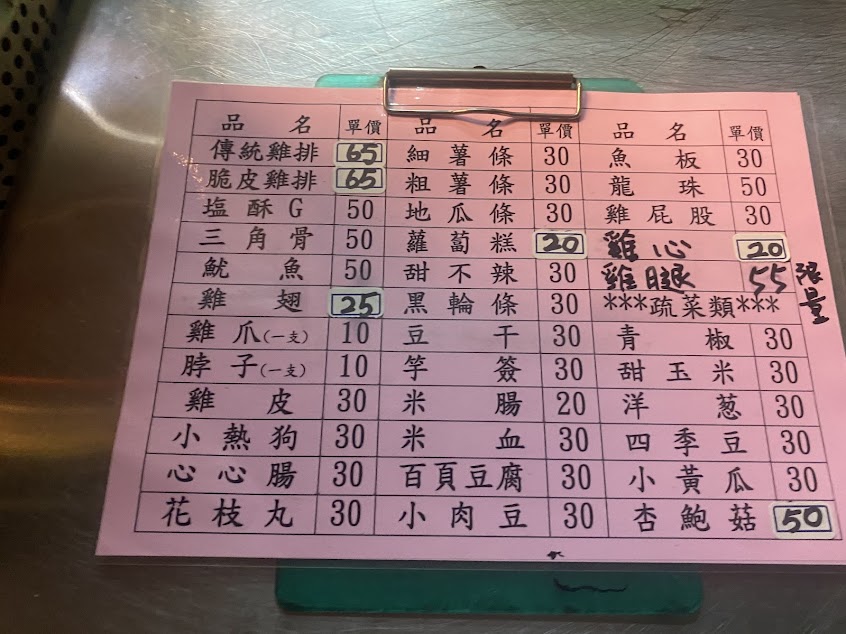 品名 單價 品名 單價 品名 單價
傳統雞排 65 細薯條 30 魚板 30
脆皮雞排 65 粗薯條 30 龍珠 50
塩酥G 50 地瓜條 30 雞屁股 30
三角骨 50 蘿蔔糕 20 雞心 20
魷魚 50 甜不辣 30 雞腿 55 限量
雞翅 25 黑輪條 30 ***疏菜類***
雞爪(一支) 10 豆干 30 青椒 30
脖子(一支) 10 竽簽 30 甜玉米 30
雞皮 30 米腸 20 洋蔥 30
小熱狗 30 米血 30 四季豆 30
心心腸 30 百頁豆腐 30 小黃瓜 30
花枝丸 30 小肉豆 30 杏鮑菇 50